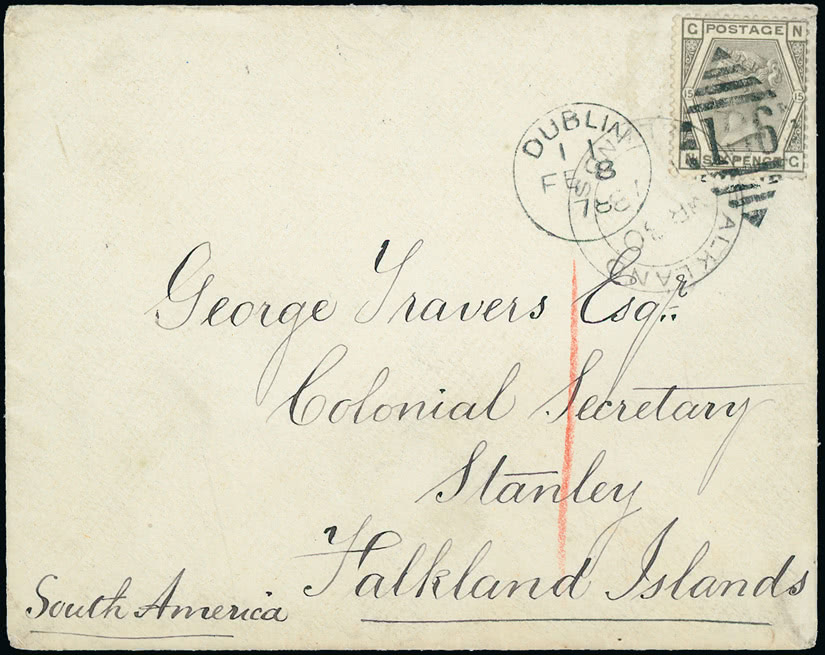 G POSTAGE N
15 15
N SIX PENCE G
186
DUBLIN
1 1
FE 8
78
FALKLAND ISLANDS
MR 30
78
George Travers Esqr.
Colonial Secretary
Stanley
Falkland Islands
South America